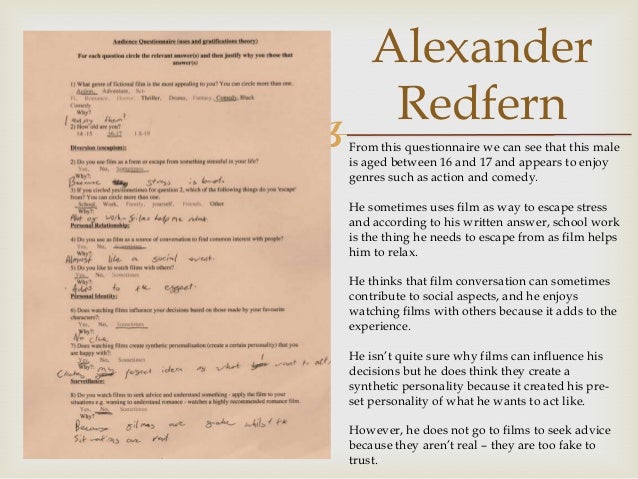 Audience Questionnaire (uses and gratifications theory)
For each question circle the relevant answer(s) and then justify why you chose that
answer(s)
1) What genre of fictional film is the most appealing to you? You can circle more than one.
Action, Adventure, Sci-
Fi, Romance, Horror, Thriller, Drama, Fantasy, Comedy, Black
Comedy
Why?:
I enjoy them
2) How old are you?
14 -15 16-17 18-19
Diversion (escapism):
2) Do you use film as a form or escape from something stressful in your life?
Yes, No, Sometimes
Why?:
Because stress is
3) If you circled yes/sometimes for question 2, which of the following things do you 'escape
from'? You can circle more than one.
School, Work, Family, yourself, Friends, Other
Why?:
of work - films help me relax.
Personal Relationship:
4) Do you use film as a source of conversation to find common interest with people?
Yes, No, Sometimes
Why?:
Almost like a social event.
5) Do you like to watch films with others?
Yes, No, Sometimes
Why?:
Adds to the
Personal Identity:
6) Does watching films influence your decisions based on those made by your favourite
characters?:
Yes, No, Sometimes
Why?:
No clue
7) Does watching films create synthetic personalisation (create a certain personality) that you
are happy with?:
Yes, No, Sometimes
Why?:
my idea of what I want to act
Surveillance:
8) Do you watch films to seek advice and understand something - apply the film to your
situations e.g. wanting to understand romance - watches a highly recommended romance film.
Yes, No, Sometimes
Why?
Because films are whilst the
situations are real
Alexander
Redfern
From this questionnaire we can see that this male
is aged between 16 and 17 and appears to enjoy
genres such as action and comedy.
He sometimes uses film as way to escape stress
and according to his written answer, school work
is the thing he needs to escape from as film helps
him to relax.
He thinks that film conversation can sometimes
contribute to social aspects, and he enjoys
watching films with others because it adds to the
experience.
He isn't quite sure why films can influence his
decisions but he does think they create a
synthetic personality because it created his pre-
set personality of what he wants to act like.
However, he does not go to films to seek advice
because they aren't real – they are too fake to
trust.